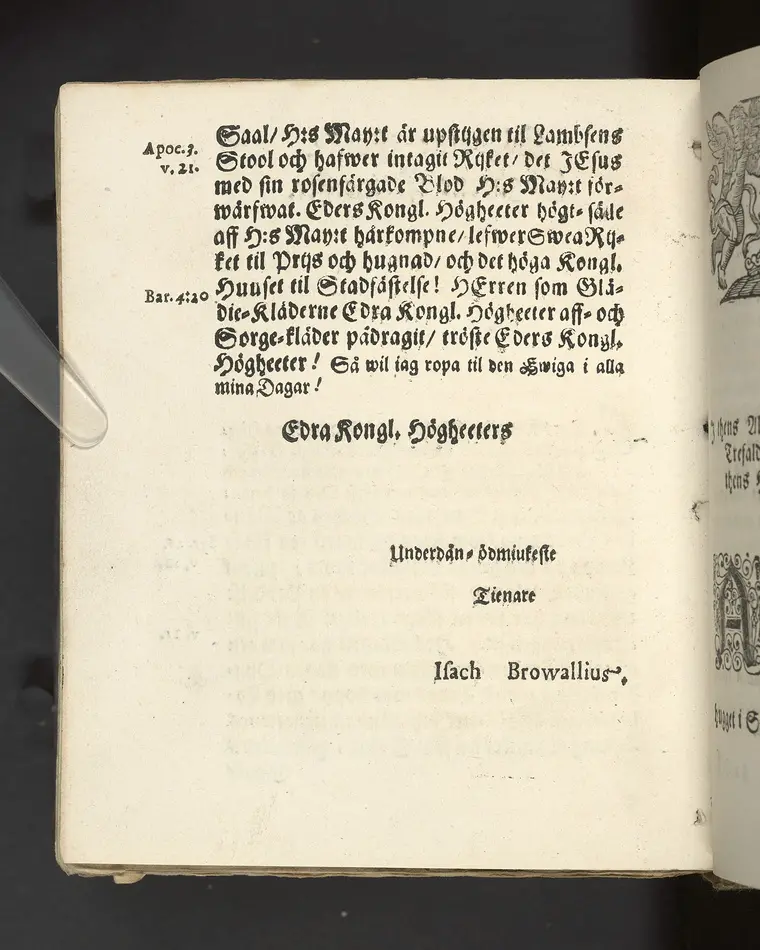 Saal/ H:s May:t är upstijgen til Lambsens
Apoc.3.
v. 21.
Stool och hafwer intagit Rijket/ det JEsus
med sin rosenfärgade Blod H:s May:t för-
wärfwat. Eders Kongl. Högheeter högt-säle
aff H:s May:t härkompne/ lefwer Swea Rij-
ket til Prijs och hugnad/ och det höga Kongl.
Bar. 4:20
Huuset til Stadfästelse! HErren som Glä-
die-Kläderne Edra Kongl. Högheeter aff- och
Sorge-kläder pådragit/ tröste Eders Kongl.
Högheeter! Så wil iag ropa til den Ewiga i alla
mina Dagar!
Edra Kongl. Högheeters
Underdån- ödmiukeste
Tienare
Isach Browallius.